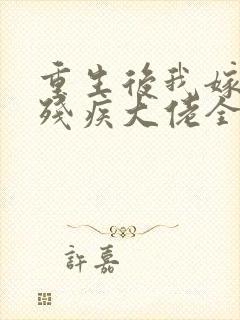 重生後我嫁
殘疾大佬全
許嘉